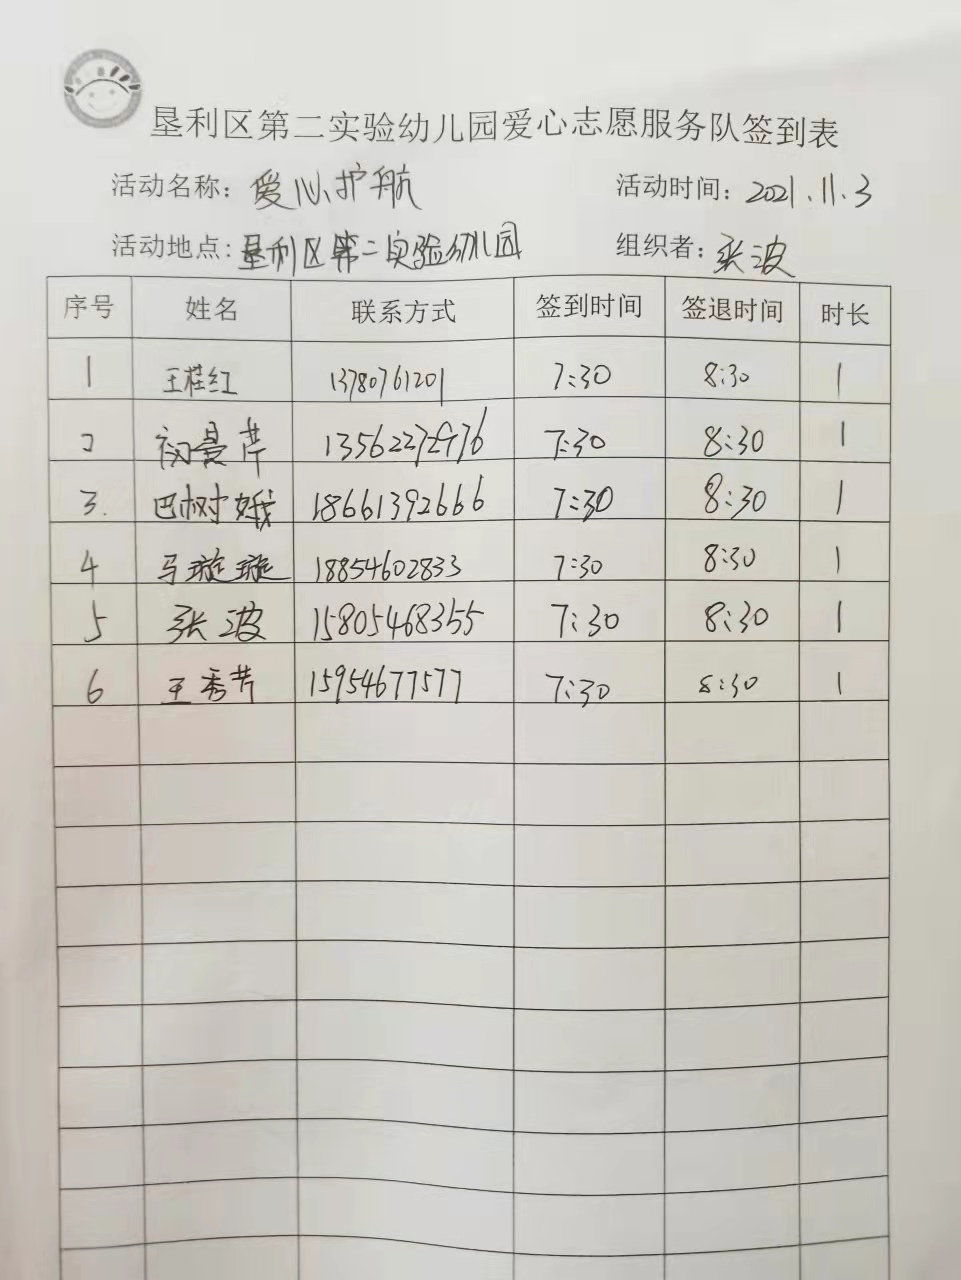 垦利区第二实验幼儿园爱心志愿服务队签到表
活动名称：爱心护航 活动时间：2021.11.3
活动地点：垦利区第二实验幼儿园 组织者：张波
序号 姓名 联系方式 签到时间 签退时间 时长
1 王桂红 13780761201 7:30 8:30 1
2 初曼芹 7:30 8:30 1
3. 巴树娥 18661392666 7:30 8:30 1
4 马璇璇 18854602833 7:30 8:30 1
5 张波 15805468355 7:30 8:30 1
6 王秀芳 15954677577 7:30 8:30 1